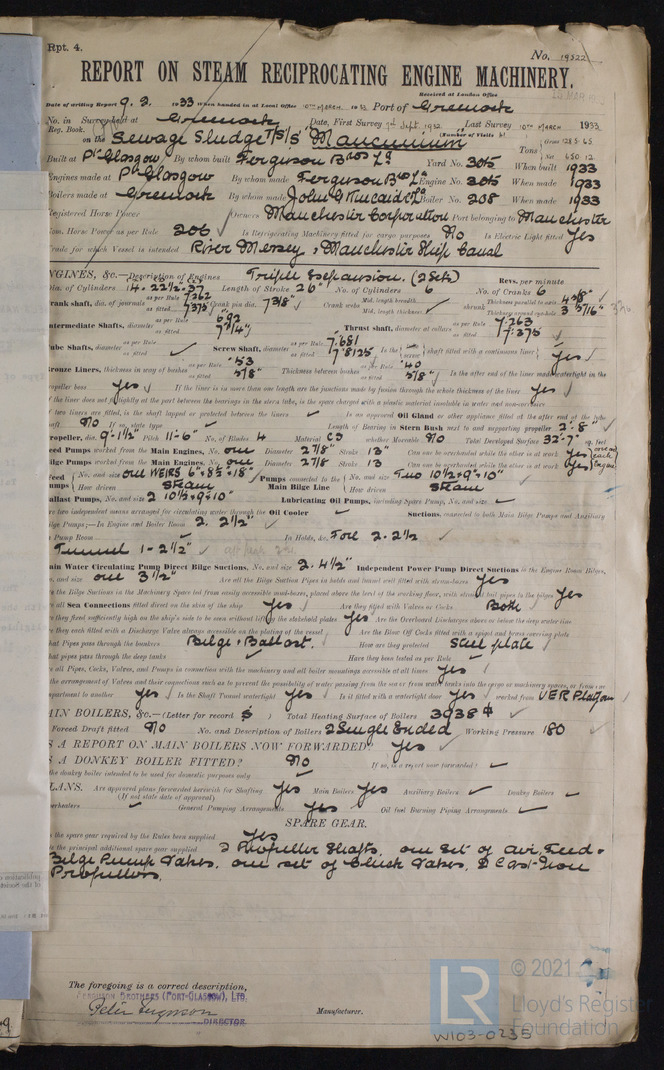 Rpt. 4.
No. 19522
REPORT ON STEAM RECIPROCATING ENGINE MACHINERY.
Received at London Office
Date of writing Report 9. 3. 1933 When handed in at Local Office 10TH MARCH 1933 Port of Greenock
No. in Survey held at Greenock Date, First Survey 7th Sept. 1932 Last Survey 10TH MARCH 1933
Reg. Book. (Number of Visits
on the Sewage Sludge T/S/S "Mancunium" Tons Gross 1285.45
Net 650.12
Built at Pt Glasgow By whom built Ferguson Bros Ld Yard No. 305 When built 1933
Engines made at Pt Glasgow By whom made Ferguson Bros Ld Engine No. 305 When made 1933
Boilers made at Greenock By whom made John G Kincaid & Co Ld Boiler No. 208 When made 1933
Registered Horse Power Owners Manchester Corporation Port belonging to Manchester
Nom. Horse Power as per Rule 206 Is Refrigerating Machinery fitted for cargo purposes No Is Electric Light fitted Yes
Trade for which Vessel is intended River Mersey & Manchester Ship Canal
ENGINES, &c.—Description of Engines Triple Expansion. (2 Sets) Revs. per minute
Dia. of Cylinders 14-22½-37 Length of Stroke 26" No. of Cylinders 6 No. of Cranks 6
Crank shaft, dia. of journals as per Rule 7.262 as fitted 7.375 Crank pin dia. 7 3/8" Crank webs Mid. length breadth Mid. length thickness shrunk Thickness parallel to axis 4 5/8" Thickness around eye-hole 3 5/16"
Intermediate Shafts, diameter as per Rule 6.92 as fitted 7 1/4" Thrust shaft, diameter at collars as per Rule 7.263 as fitted 7.375
Tube Shafts, diameter as per Rule as fitted Screw Shaft, diameter as per Rule 7.681 as fitted 7.8125 Is the screw shaft fitted with a continuous liner Yes
Bronze Liners, thickness in way of bushes as per Rule .53 as fitted 5/8" Thickness between bushes as per Rule .40 as fitted 5/8" Is the after end of the liner made watertight in the
propeller boss Yes If the liner is in more than one length are the junctions made by fusion through the whole thickness of the liner Yes
If the liner does not fit tightly at the part between the bearings in the stern tube, is the space charged with a plastic material insoluble in water and non-corrosive
If two liners are fitted, is the shaft lapped or protected between the liners Is an approved Oil Gland or other appliance fitted at the after end of the tube
shaft No If so, state type Length of Bearing in Stern Bush next to and supporting propeller 2'-8"
Propeller, dia. 9'-1½" Pitch 11'-6" No. of Blades 4 Material C.I. whether Moveable No Total Developed Surface 32'-7" sq. feet
Feed Pumps worked from the Main Engines, No. one Diameter 2 7/8 Stroke 13" Can one be overhauled while the other is at work Yes
Bilge Pumps worked from the Main Engines, No. one Diameter 2 7/8 Stroke 13 Can one be overhauled while the other is at work Yes
Feed Pumps No. and size one WEIRS 6" & 8½" x 18" How driven Steam Pumps connected to the Main Bilge Line No. and size Two 10½ x 9" x 10" How driven Steam
Ballast Pumps, No. and size 2 10½ x 9" x 10" Lubricating Oil Pumps, including Spare Pump, No. and size
Are two independent means arranged for circulating water through the Oil Cooler Suctions, connected to both Main Bilge Pumps and Auxiliary
Bilge Pumps;—In Engine and Boiler Room 2. 2½"
In Pump Room In Holds, &c. Fore 2-2½
Tunnel 1-2½"
Main Water Circulating Pump Direct Bilge Suctions, No. and size 2. 4½" Independent Power Pump Direct Suctions to the Engine Room Bilges,
No. and size one 3½" Are all the Bilge Suction Pipes in holds and tunnel well fitted with strum-boxes Yes
Are the Bilge Suctions in the Machinery Space led from easily accessible mud-boxes, placed above the level of the working floor, with straight tail pipes to the bilges Yes
Are all Sea Connections fitted direct on the skin of the ship Yes Are they fitted with Valves or Cocks Both
Are they fixed sufficiently high on the ship's side to be seen without lifting the stokehold plates Yes Are the Overboard Discharges above or below the deep water line
Are they each fitted with a Discharge Valve always accessible on the plating of the vessel Are the Blow Off Cocks fitted with a spigot and brass covering plate
What Pipes pass through the bunkers Bilge & Ballast. How are they protected Steel plate
What pipes pass through the deep tanks Have they been tested as per Rule
Are all Pipes, Cocks, Valves, and Pumps in connection with the machinery and all boiler mountings accessible at all times Yes
Is the arrangement of Valves and their connections such as to prevent the possibility of water passing from the sea or from water tanks into the cargo or machinery spaces, or from one
compartment to another Yes Is the Shaft Tunnel watertight Yes Is it fitted with a watertight door Yes worked from U.E.R. Platform
MAIN BOILERS, &c.—(Letter for record S ) Total Heating Surface of Boilers 3938
Forced Draft fitted No No. and Description of Boilers 2 Single Ended Working Pressure 180
IS A REPORT ON MAIN BOILERS NOW FORWARDED? Yes
IS A DONKEY BOILER FITTED? No If so, is a report now forwarded?
Is the donkey boiler intended to be used for domestic purposes only
PLANS. Are approved plans forwarded herewith for Shafting Yes Main Boilers Yes Auxiliary Boilers Donkey Boilers
(If not state date of approval)
Superheaters General Pumping Arrangements Yes Oil fuel Burning Piping Arrangements
SPARE GEAR.
Is the spare gear required by the Rules been supplied Yes
State the principal additional spare gear supplied 2 Propeller Shafts, one set of Air, Feed &
Bilge Pump Valves, one set of Check Valves, 2 Cast-Iron
Propellers.
The foregoing is a correct description,
FERGUSON BROTHERS (PORT-GLASGOW), LTD.
Peter Ferguson
DIRECTOR.
Manufacturer.
© 2021
LR
Lloyd's Register
Foundation
W103-0235